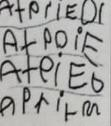 AtpriEDI
AtPOiE
AtPiEb
APritm